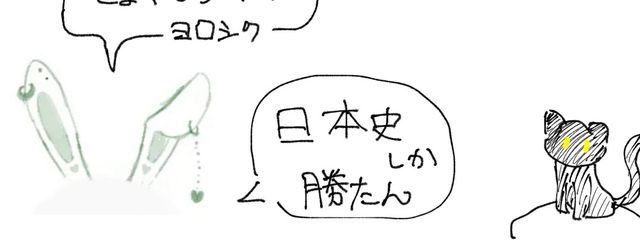 ヨロシク
日本史
しか
勝たん